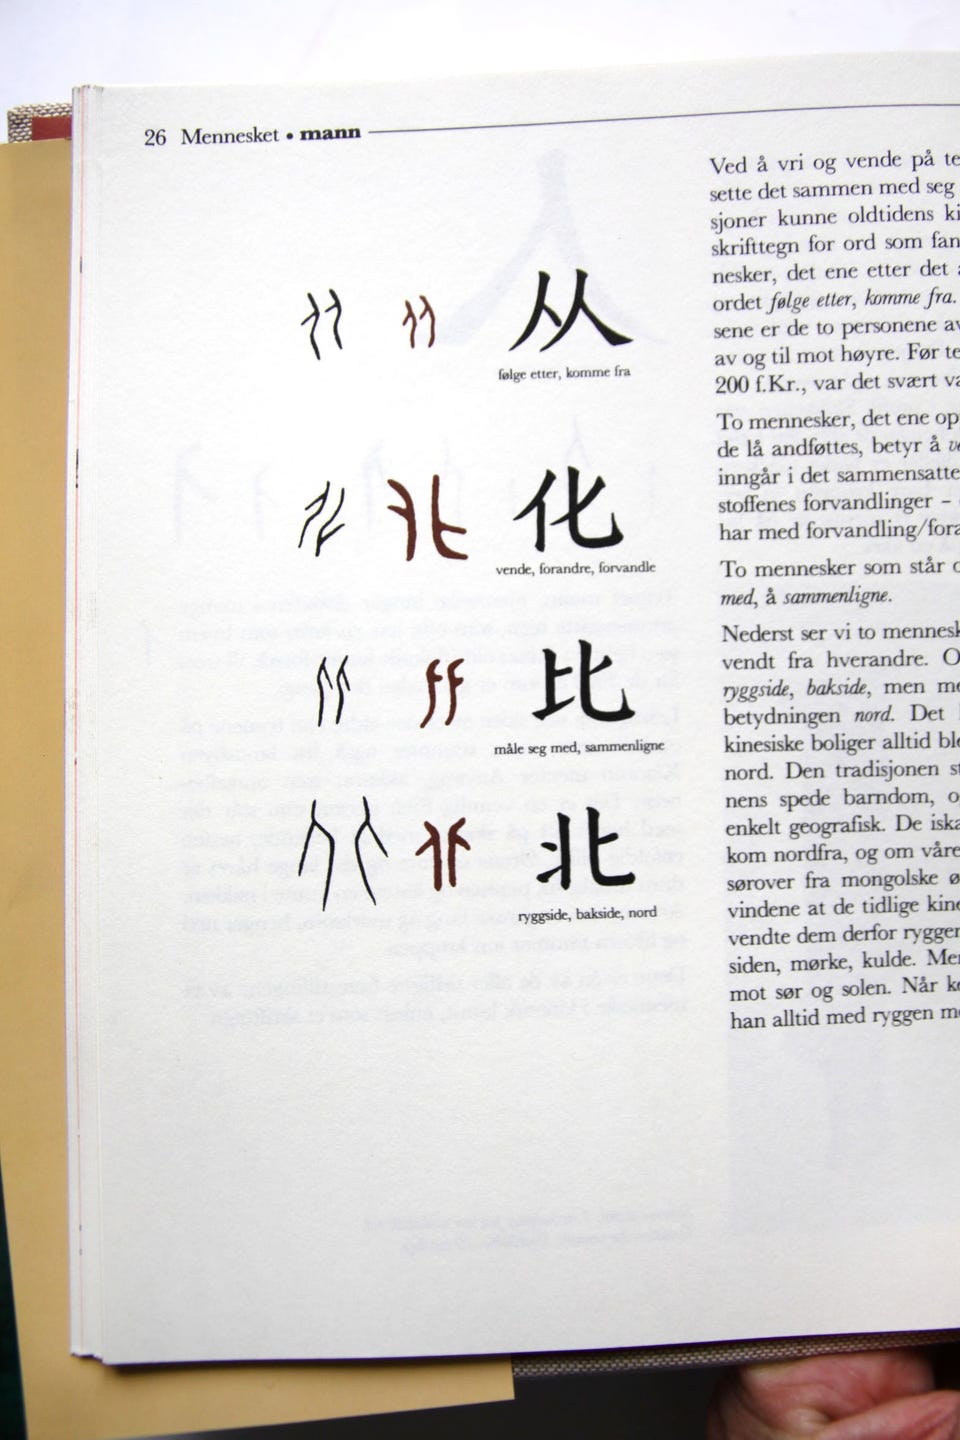 26 Mennesket • mann
从
følge etter, komme fra
化
vende, forandre, forvandle
比
måle seg med, sammenligne
北
ryggside, bakside, nord
Ved å vri og vende på
sette det sammen med seg
sjoner kunne oldtidens
skrifttegn for ord som
nesker, det ene etter det
ordet følge etter, komme fra.
sene er de to personene
av og til mot høyre. Før
200 f.Kr., var det svært
To mennesker, det ene
de lå andføttes, betyr å
inngår i det
stoffenes forvandlinger –
har med
To mennesker som står
med, å sammenligne.
Nederst ser vi to
vendt fra hverandre.
ryggside, bakside, men
betydningen nord. Det
kinesiske boliger alltid
nord. Den tradisjonen
nens spede barndom,
enkelt geografisk. De
kom nordfra, og om
sørover fra mongolske
vindene at de tidlige
vendte dem derfor
siden, mørke, kulde.
mot sør og solen. Når
han alltid med ryggen